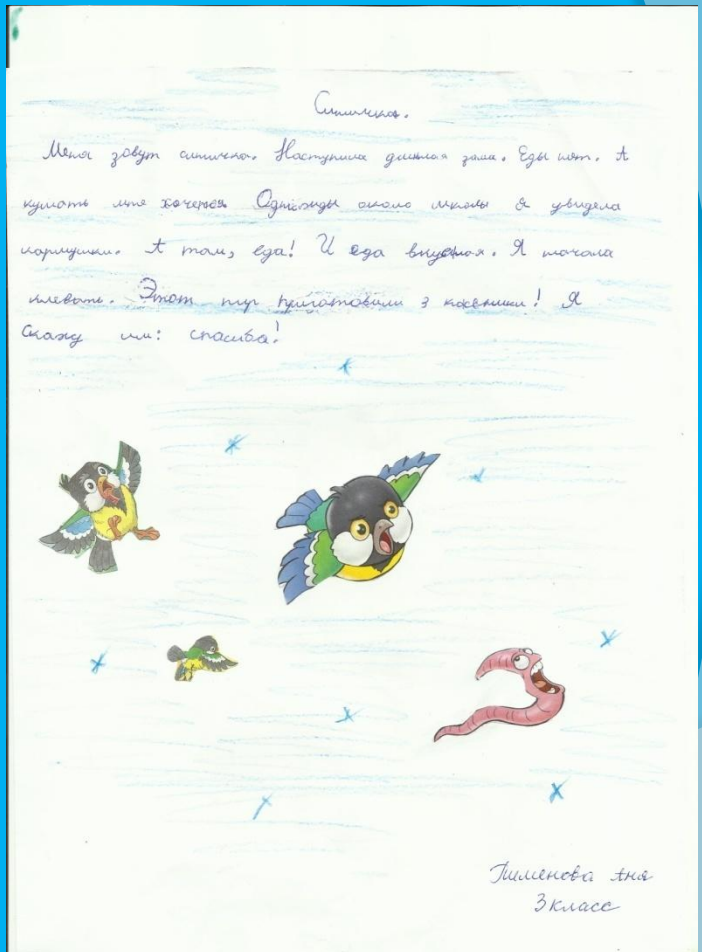 Синичка.
Меня зовут синичка. Наступила длинная зима. Еды нет. А
кушать мне хочется. Однажды около школы я увидела
кормушки. А там, еда! И еда вкусная. Я начала
клевать. Этот пир приготовили 3 классники! Я
скажу им: спасиба!
Пименова Аня
3 класс